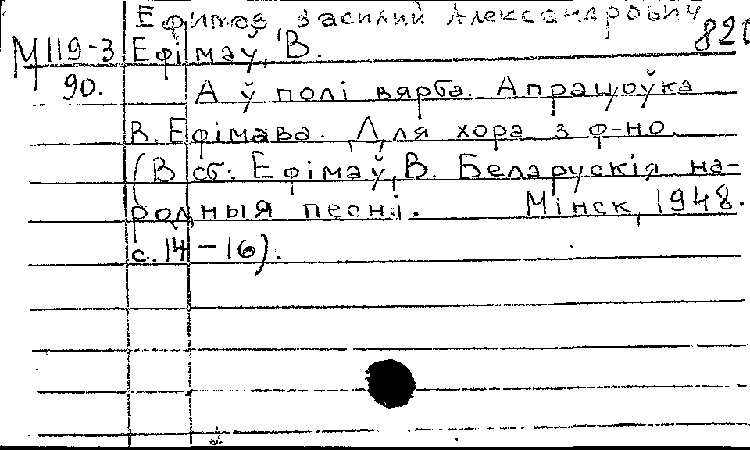 Ефимов Василий Александрович
М119-3 Ефімаў, В. 820
90.
А ў полі вярба. Апрацоўка
В. Ефімава. Для хора з ф-но
(В сб. Ефімаў, В. Беларускія на-
родныя песні. Мінск, 1948.
с. 14-16).